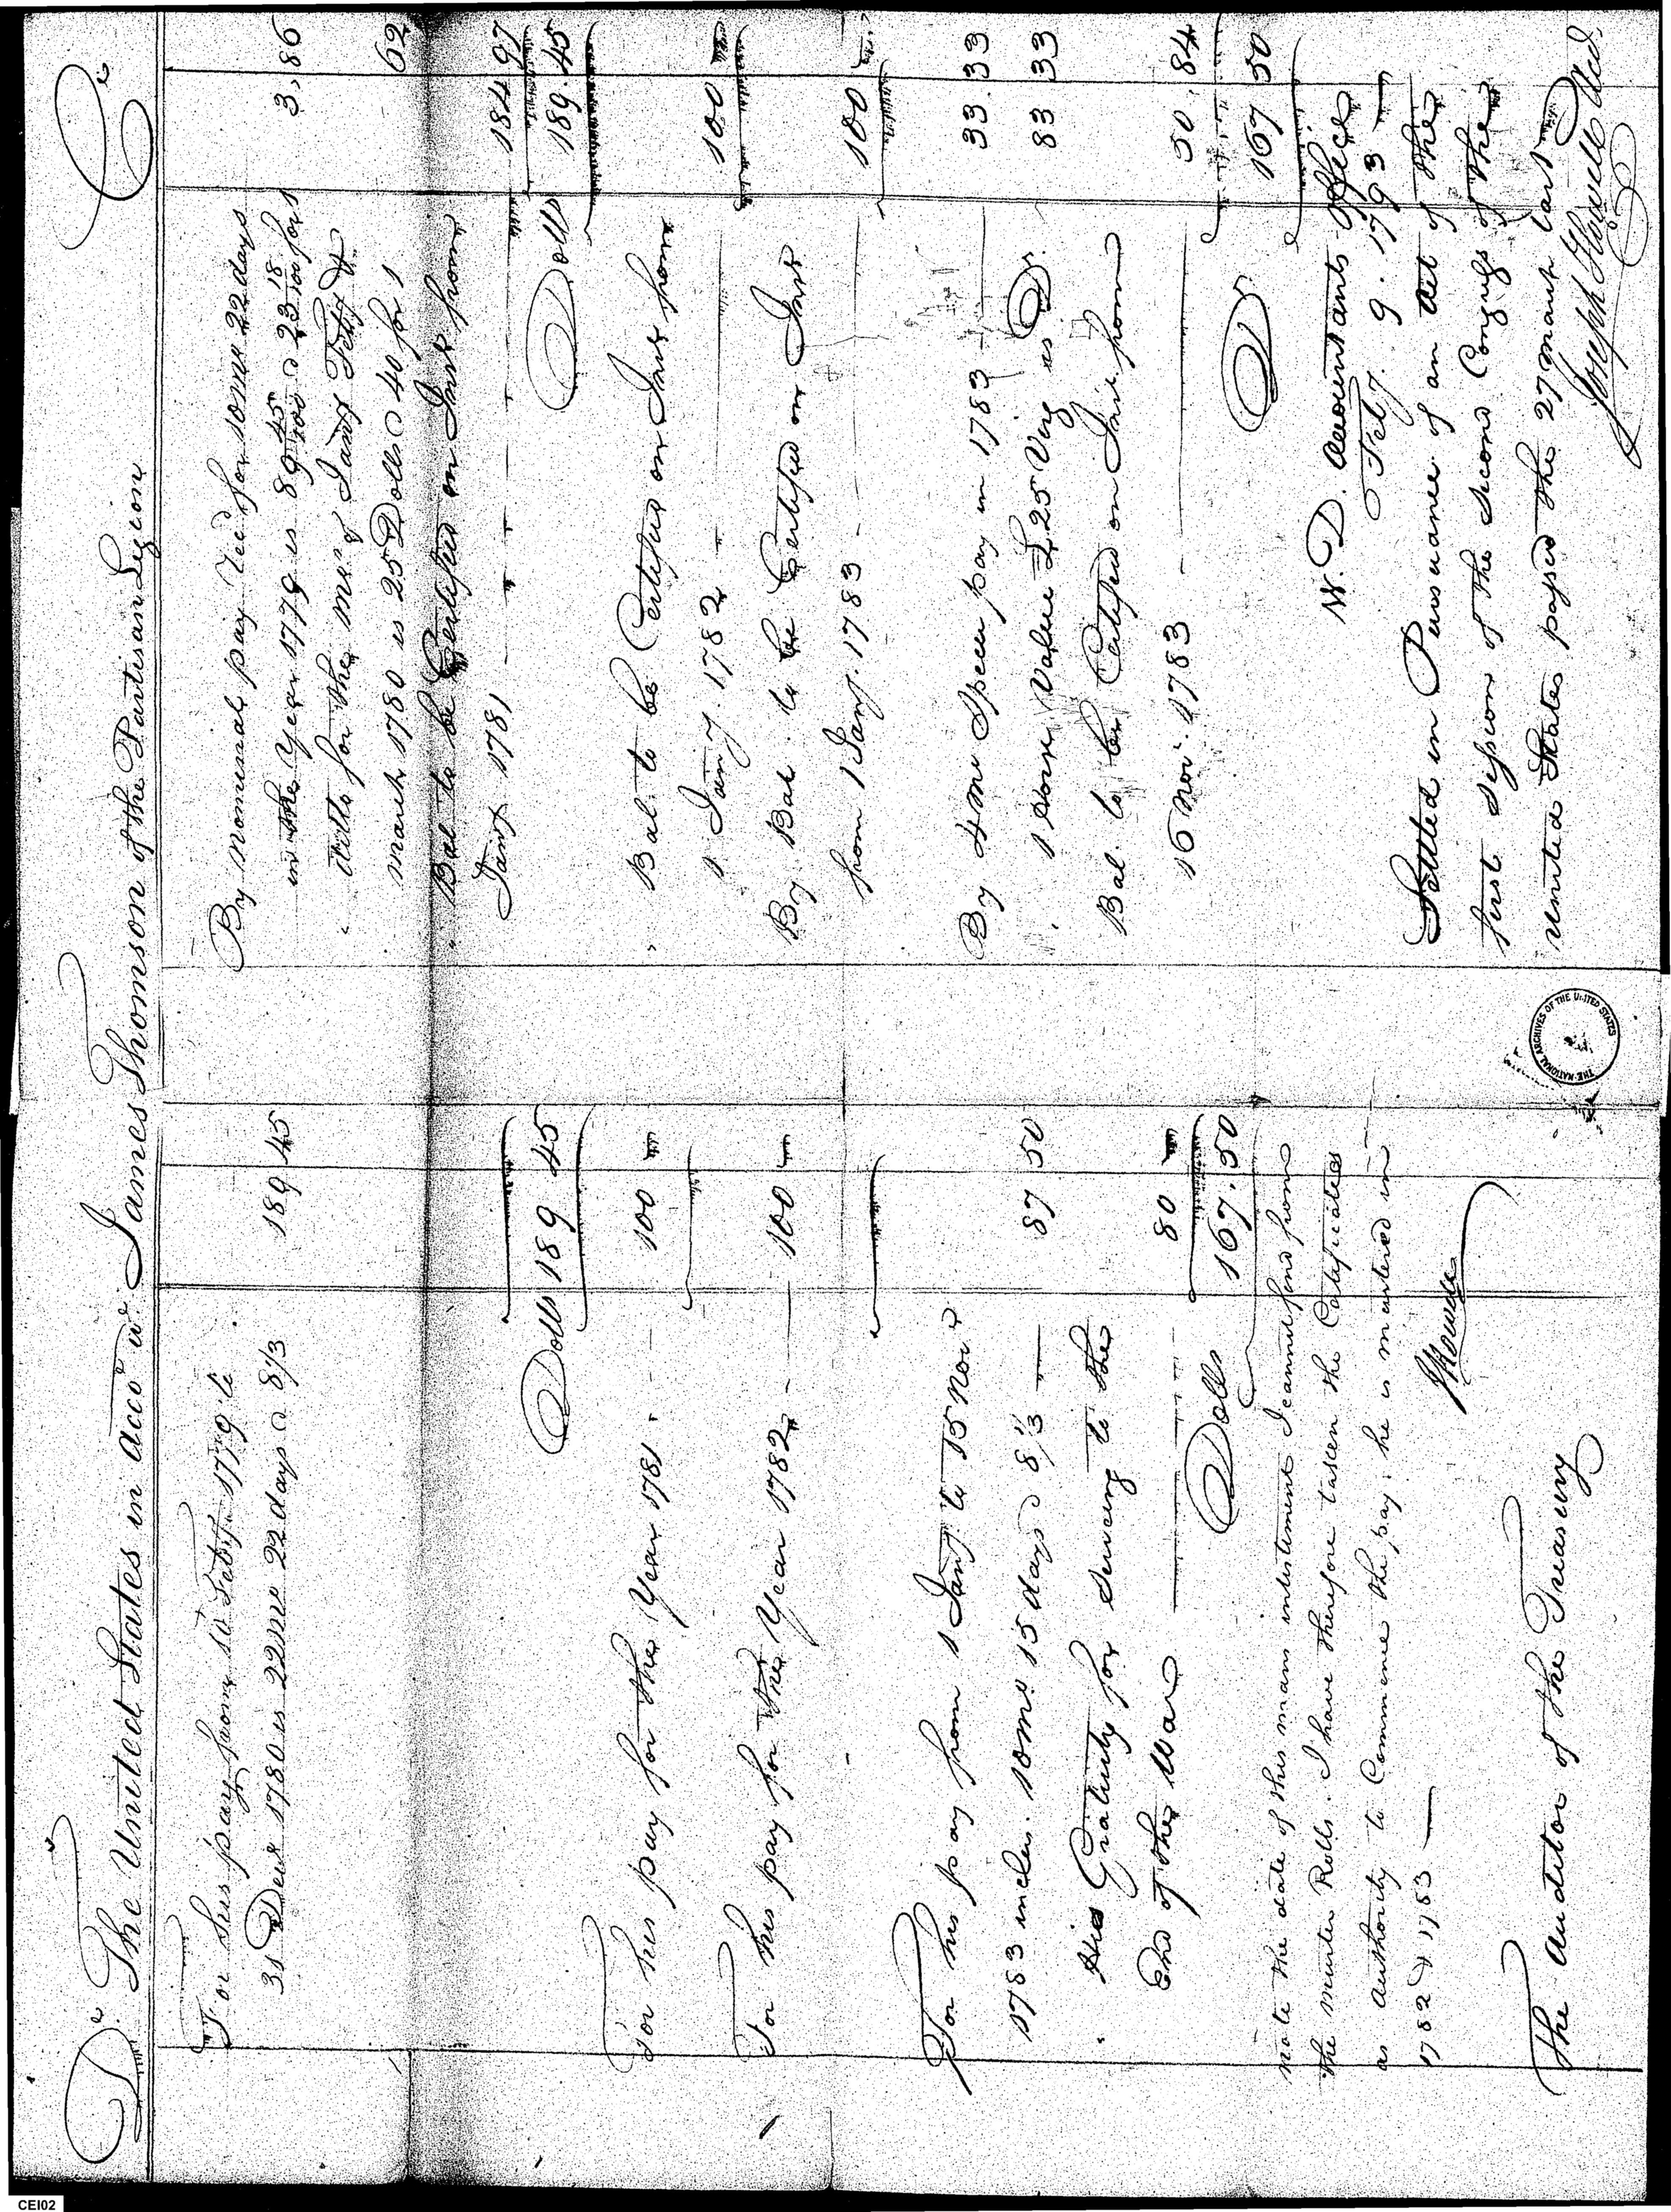 Dr. The United States in acco wt. James Thomson of the Partisan Legion Cr
For his pay from 10 Feby. 1779 to
31 Decr 1780 is 22 mo 22 days @ 8 1/3 189 45
Dolls 189.45
For his pay for the Year 1781 100
For his pay for the Year 1782 100
For his pay from 1 Jany. to 15 Nov
1783 inclus. 10 mo. 15 days @ 8 1/3 87 50
" His Gratuity for serving to the
End of the War 80
Dolls 167.50
note the date of this mans inlistment I cannot find from
the muster Rolls. I have therefore taken the Certificates
as authority to Commence the pay, he is mustered in
1782 & 1783
JHowell
The Auditor of the Treasury
By nominal pay recd for 10 mo 22 days
in the Year 1779 is 89 45/100 @ 23 18/100 for 1 3,86
" ditto for the mos. of Jany Feby &
march 1780 is 25 Dolls @ 40 for 1 62
" Bal to be Certified on Int from
Jany 1781 184 97
Dolls 189.45
" Bal. to be Certified on Int from
1 Jany. 1782 100
By Bal. to be Certified on Int
from 1 Jany. 1783 100
By 4 mo Specie pay in 1783 33.33
" 1 Horse Value £25 Virg is Dr. 83 33
Bal. to be Certified on Int from
16 Nov. 1783 50.84
Dr. 167 50
W. D. Accountants Office
Feby. 9. 1793
Settled in Pursuance of an Act of the
first session of the second Congress of the
United States passed the 27 March last
Joseph Howell Acct.
THE NATIONAL ARCHIVES OF THE UNITED STATES
CEI02